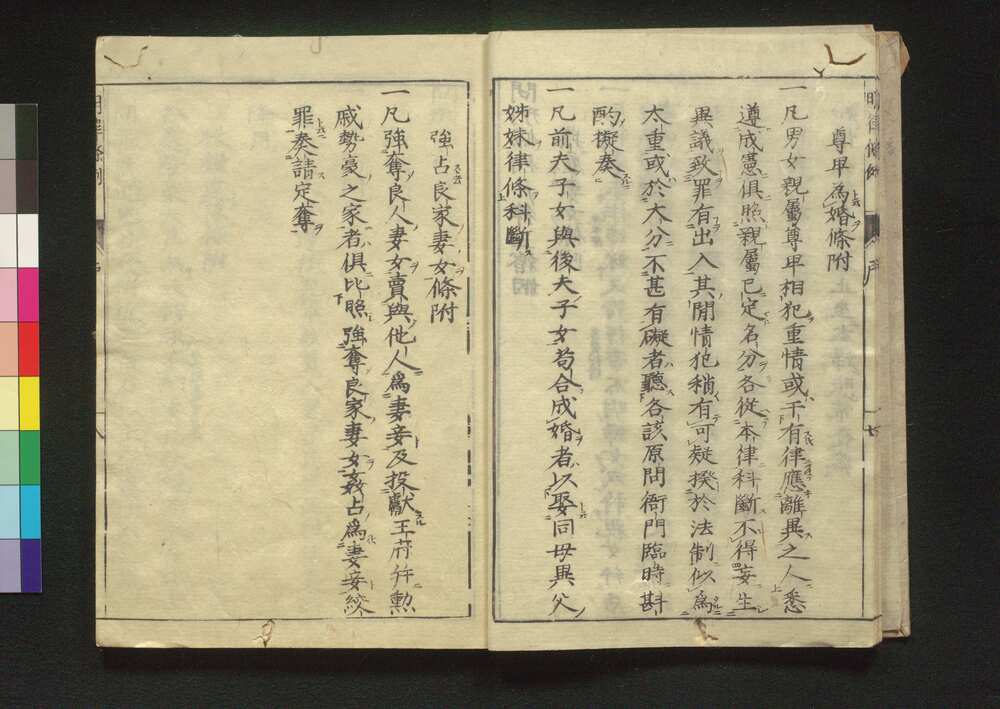 尊卑為婚條附
一凡男女親屬尊卑相犯重情或干有律應離異之人悉
遵成憲俱照親屬已定名分各從本律科斷不得妄生
異議致罪有出入其閒情犯稍有可疑揆於法制似為
太重或於大分不甚有礙者聽各該原問衙門臨時斟
酌擬奏
一凡前夫子女與後夫子女苟合成婚者以娶同母異父
姊妹律條科斷
強占良家妻女條附
一凡強奪良人妻女賣與他人為妻妾及投獻王府并勳
戚勢豪之家者俱比照強奪良家妻女姦占為妻妾絞
罪奏請定奪